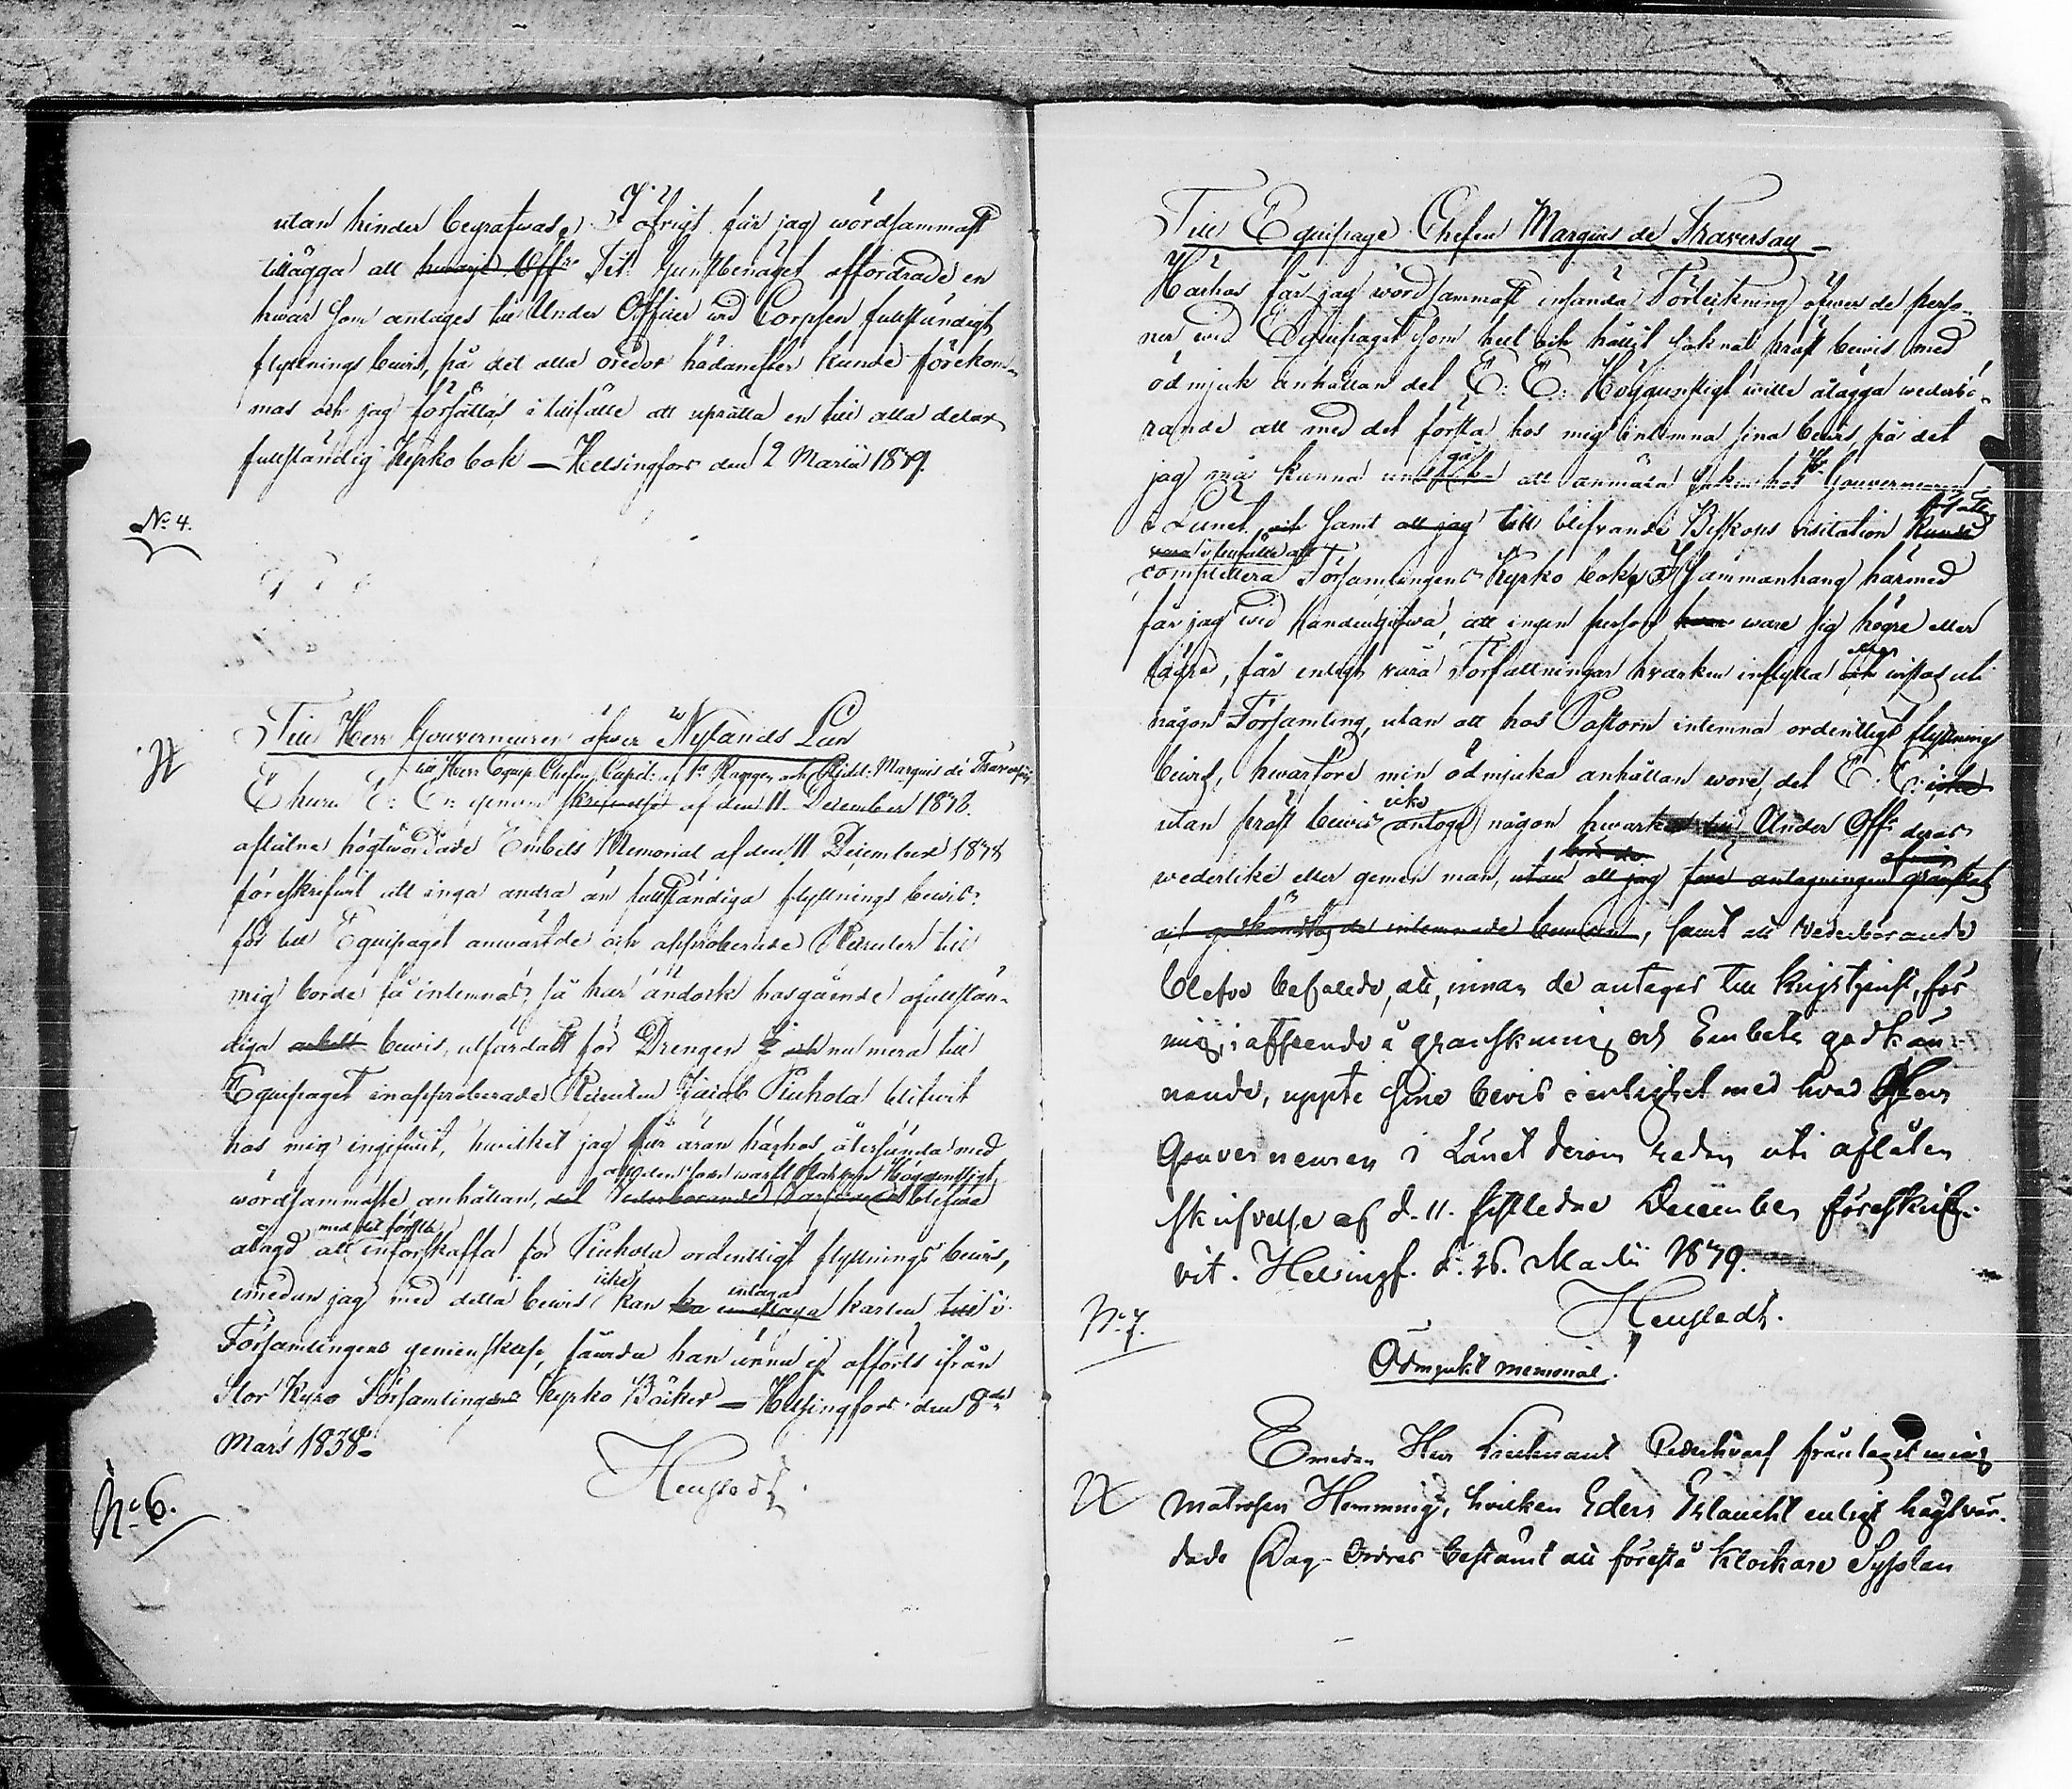 utan hinder begrafwas. I öfrigt får jag wördsammast
tillägga att Tit. gunstbenäget affordrade en
hwar som antages till Under Officier wid Corpsen fullständigt
flyttnings bewis, på det alla oredor hädanefter kunde förekom-
mas och jag försättas i tillfälle att uprätta en till alla delar
fullständig Kyrko bok — Helsingfors den 2 Martii 1839.
No 4.
Till Herr Gouverneuren öfwer Nylands Län
till Herr Equip. Chefen, Capit: af 1a Rangen och Ridd: Marquis de Traversay
Ehuru E: E: genom skrifwelse af den 11 December 1838.
aflåtne högtwördade Embets Memorial af den 11 December 1838
föreskrifwit att inga andra än fullständiga flyttnings bewis
för till Equipaget anwärfde och approberade Recruter till
mig borde få inlemnas; så har ändock hosgående ofullstän-
diga bewis, utfärdadt för Drengen och nu mera till
Equipaget inapproberade Recruten Jacob Piuhola blifwit
hos mig ingifwit, hwilket jag får äran härhos återsända med
wördsammaste anhållan, det Wederbörande blefwe
ålagd att med det första införskaffa för Piuhola ordentligt flyttnings bewis,
emedan jag med detta bewis icke kan intaga karlen i
Församlingens gemenskap, såwida han ännu ej afförts ifrån
Stor Kyro Församlings Kyrko Böcker — Helsingfors den 8de
Mars 1838.
No 6.
Till Equipage Chefen Marquis de Traversay —
Härhos får jag wördsammast insända Förteckning öfwer de perso-
ner wid Equipaget som helt och hållit saknat präst bewis med
ödmjuk anhållan det E: E: Höggunstligt wille ålägga wederbö-
rande att med det första hos mig inlemna sina bewis, på det
jag må kunna undgå att anmäla saken hos Hr Gouverneuren
i Länet, samt att jag till blifvande Biskops visitation kunde
vara i tillfälle att
complettera Församlingens Kyrko bok. I sammanhang härmed
får jag wid handen gifwa, att ingen person ware sig högre eller
lägre, får enligt våra Författningar hvarken inflytta eller wistas uti
någon Församling, utan att hos Pastorn inlemna ordentligt flyttnings
bewis, hwarföre min ödmjuka anhållan wore, det E. E. icke
utan präst bewis antoge någon hwarken till Under Off: deras
wederlike eller gemen man, utan att jag före antagningen granskat
och godkändt de inlemnade bewisen, samt att Vederbörande
blefve befalede, att, innan de antages till krigstjenst, för
mig, i afseende å granskning och Embets godkän-
nande, uppte sine bevis i enlighet med hvad Herr
Gouverneuren i Länet derom redan uti aflåten
skrifvelse af d. 11. sistledne December föreskrif-
vit. Helsingf. d. 26. Martii 1839.
No 7.
Ödmjukt memorial!
Emedan Herr Lieutenant fråntagit mig
matrosen Hemming, hvilken Eders Erlaucht enligt högtvör-
dade Dag-Ordres bestämt att förestå Klockare Sysslan